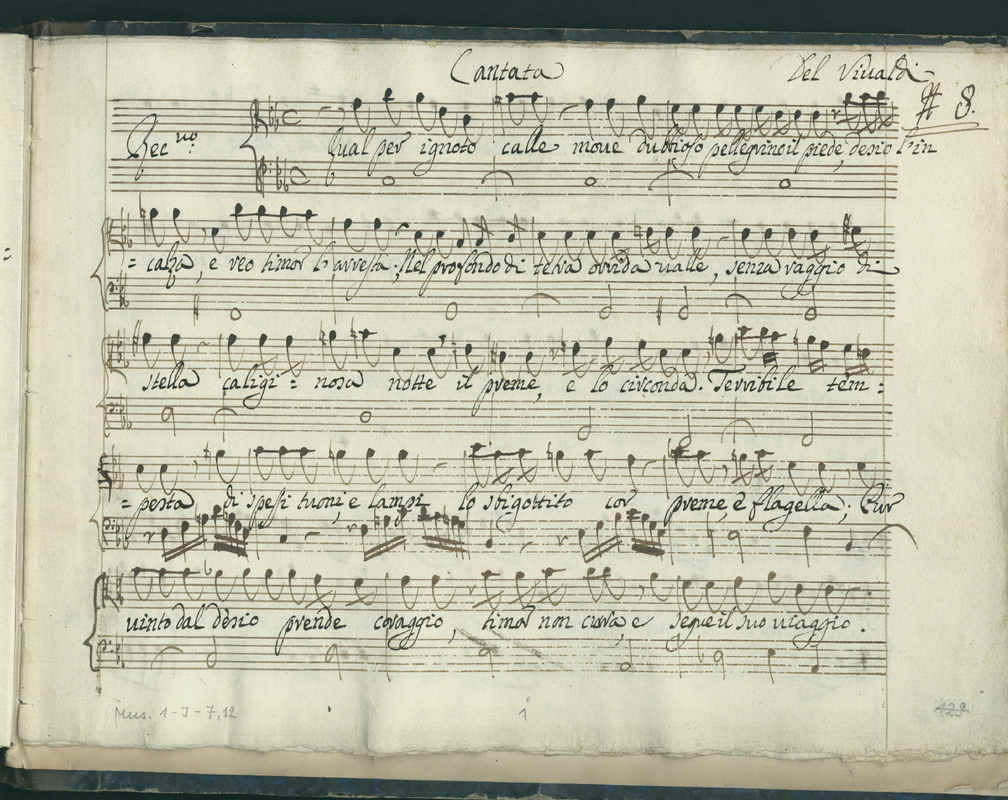 Cantata
Del Vivaldi
# 8.
Rec.vo
Qual per ignoto calle move dubbioso pellegrino il piede, desio l'in
= calza, e reo timor l'arresta; Nel profondo di tetra orrida valle, senza raggio di
stella caligi= nosa notte il preme, e lo circonda. Terribile tem=
= pesta di spessi tuoni, e lampi lo sbigottito cor preme, e flagella; Pur
vinto dal desio prende coraggio, timor non cura, e segue il suo viaggio.
Mus. 1-J-7,12
1
129